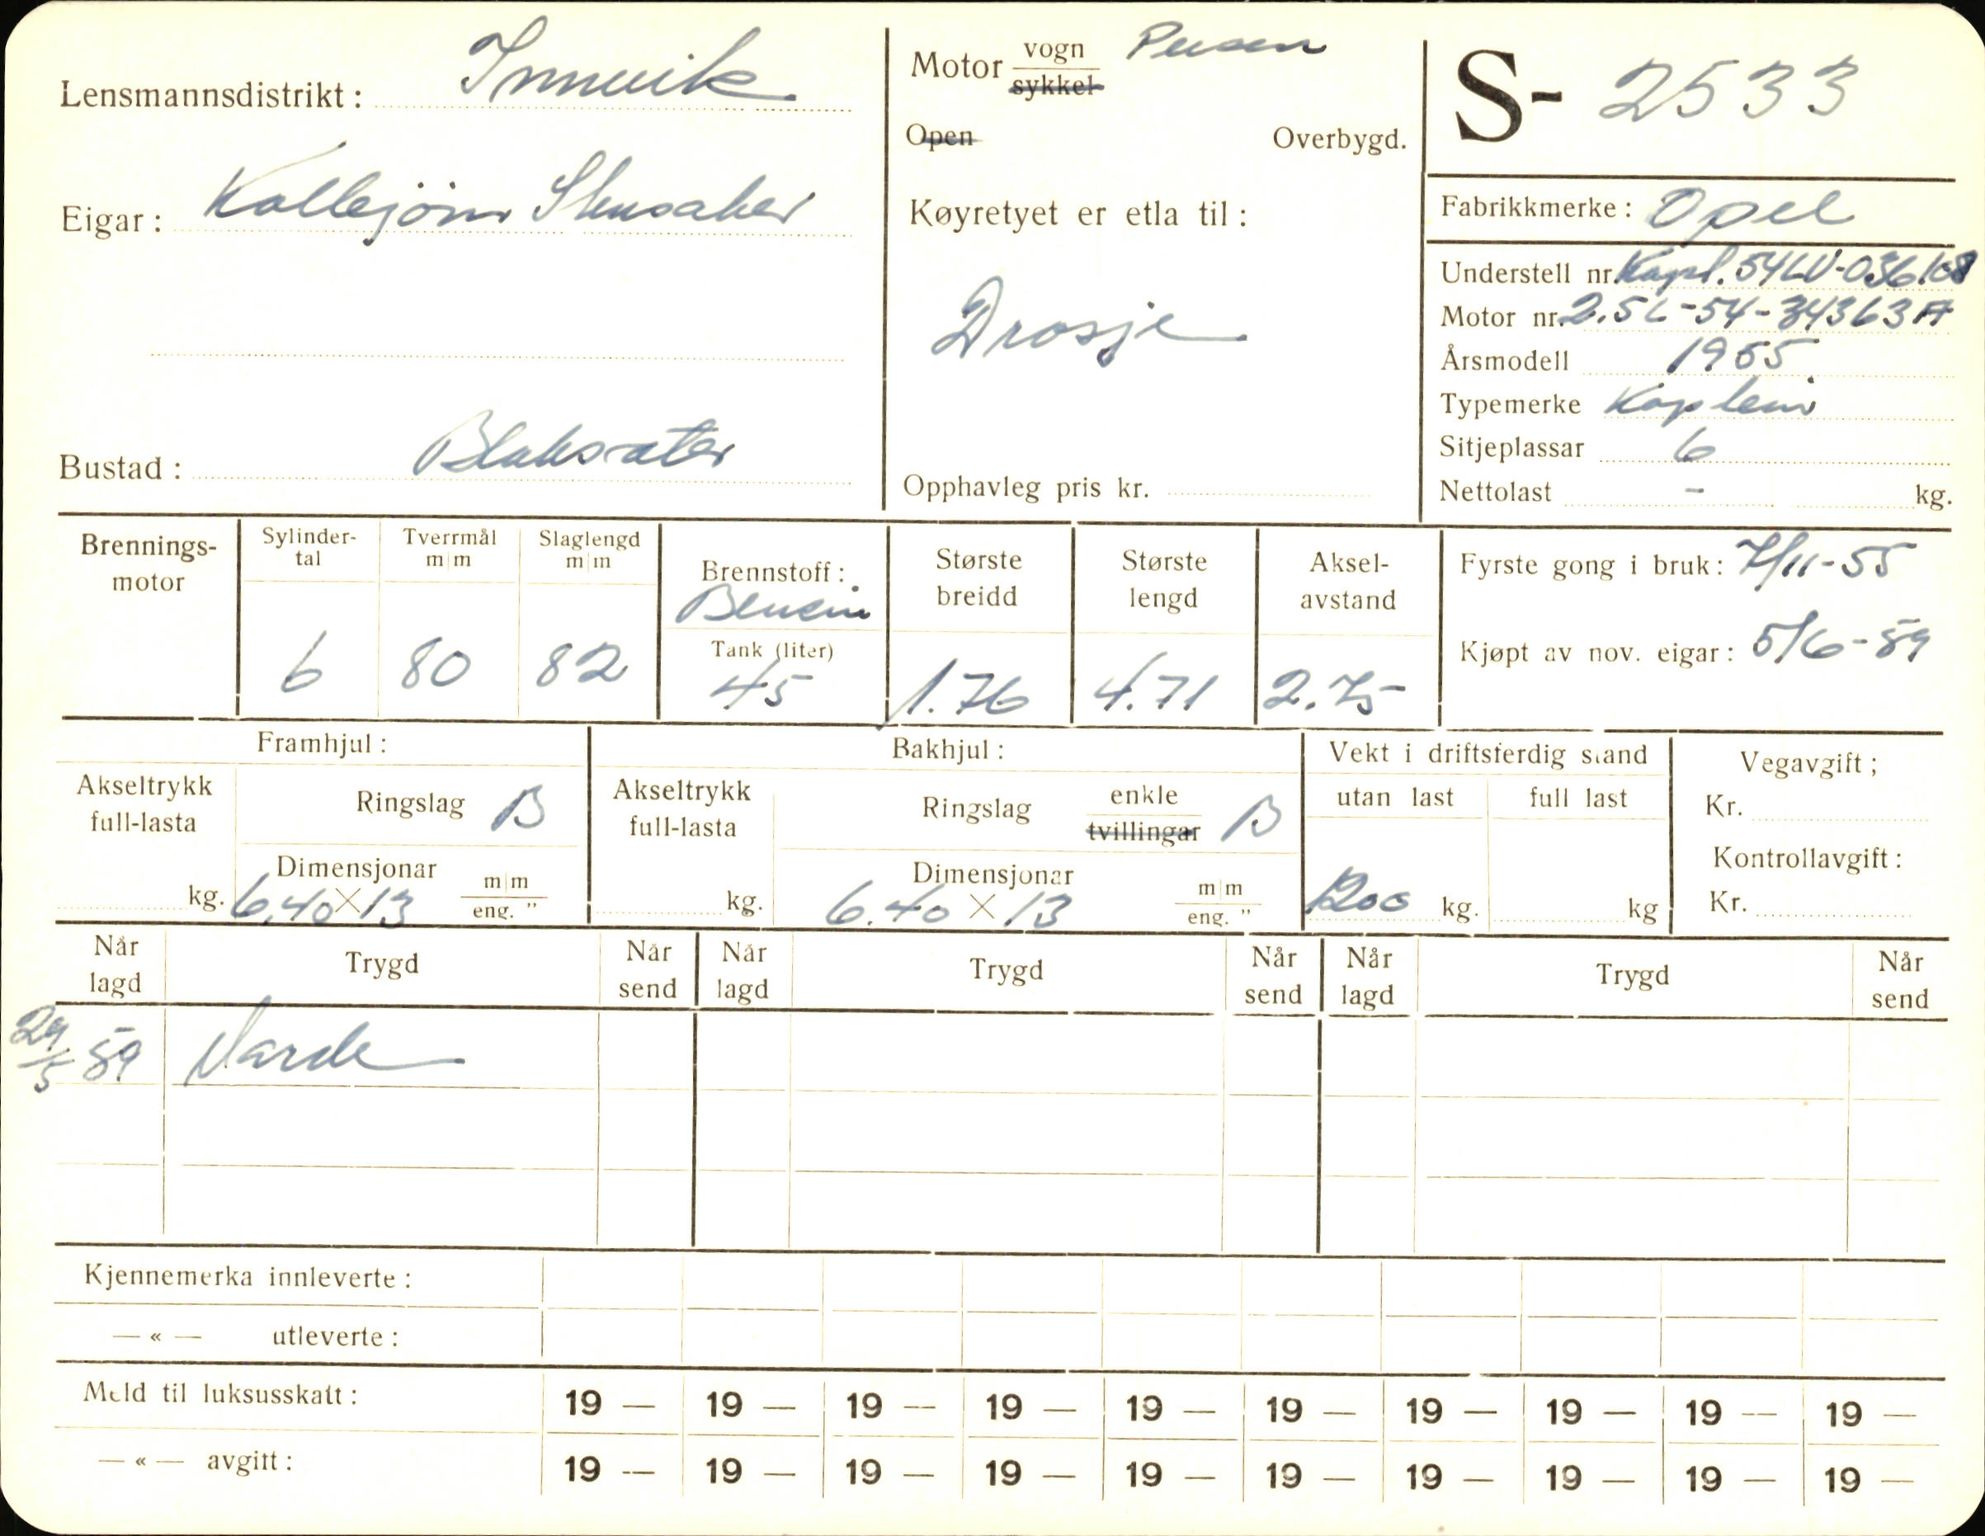 Lensmannsdistrikt: Innvik
Eigar: Kollejörn Stensaker
Bustad: Blaksæter
Motor vogn Person
sykkel
Open Overbygd.
Køyretyet er etla til:
Drosje
Opphavleg pris kr.
S- 2533
Fabrikkmerke: Opel
Understell nr. Kapt. 54LV-036108
Motor nr. 2.5L-54-34363A
Årsmodell 1955
Typemerke Kaptein
Sitjeplassar 6
Nettolast - kg.
Brenningsmotor
Sylindertal 6
Tverrmål m|m 80
Slaglengd m|m 82
Brennstoff: Bensin
Tank (liter) 45
Største breidd 1.76
Største lengd 4.71
Akselavstand 2.75
Fyrste gong i bruk: 7/11-55
Kjøpt av nov. eigar: 5/6-59
Framhjul:
Akseltrykk full-lasta kg.
Ringslag B
Dimensjonar 6.40 × 13 m|m eng. "
Bakhjul:
Akseltrykk full-lasta kg.
Ringslag enkle tvillingar B
Dimensjonar 6.40 × 13 m|m eng. "
Vekt i driftsferdig stand
utan last 1200 kg.
full last kg
Vegavgift;
Kr.
Kontrollavgift:
Kr.
Når lagd Trygd Når send Når lagd Trygd Når send Når lagd Trygd Når send
29/5 59 Varde
Kjennemerka innleverte:
— « — utleverte:
Meld til luksusskatt: 19 — 19 — 19 — 19 — 19 — 19 — 19 — 19 — 19 — 19 —
— « — avgift: 19 — 19 — 19 — 19 — 19 — 19 — 19 — 19 — 19 — 19 —